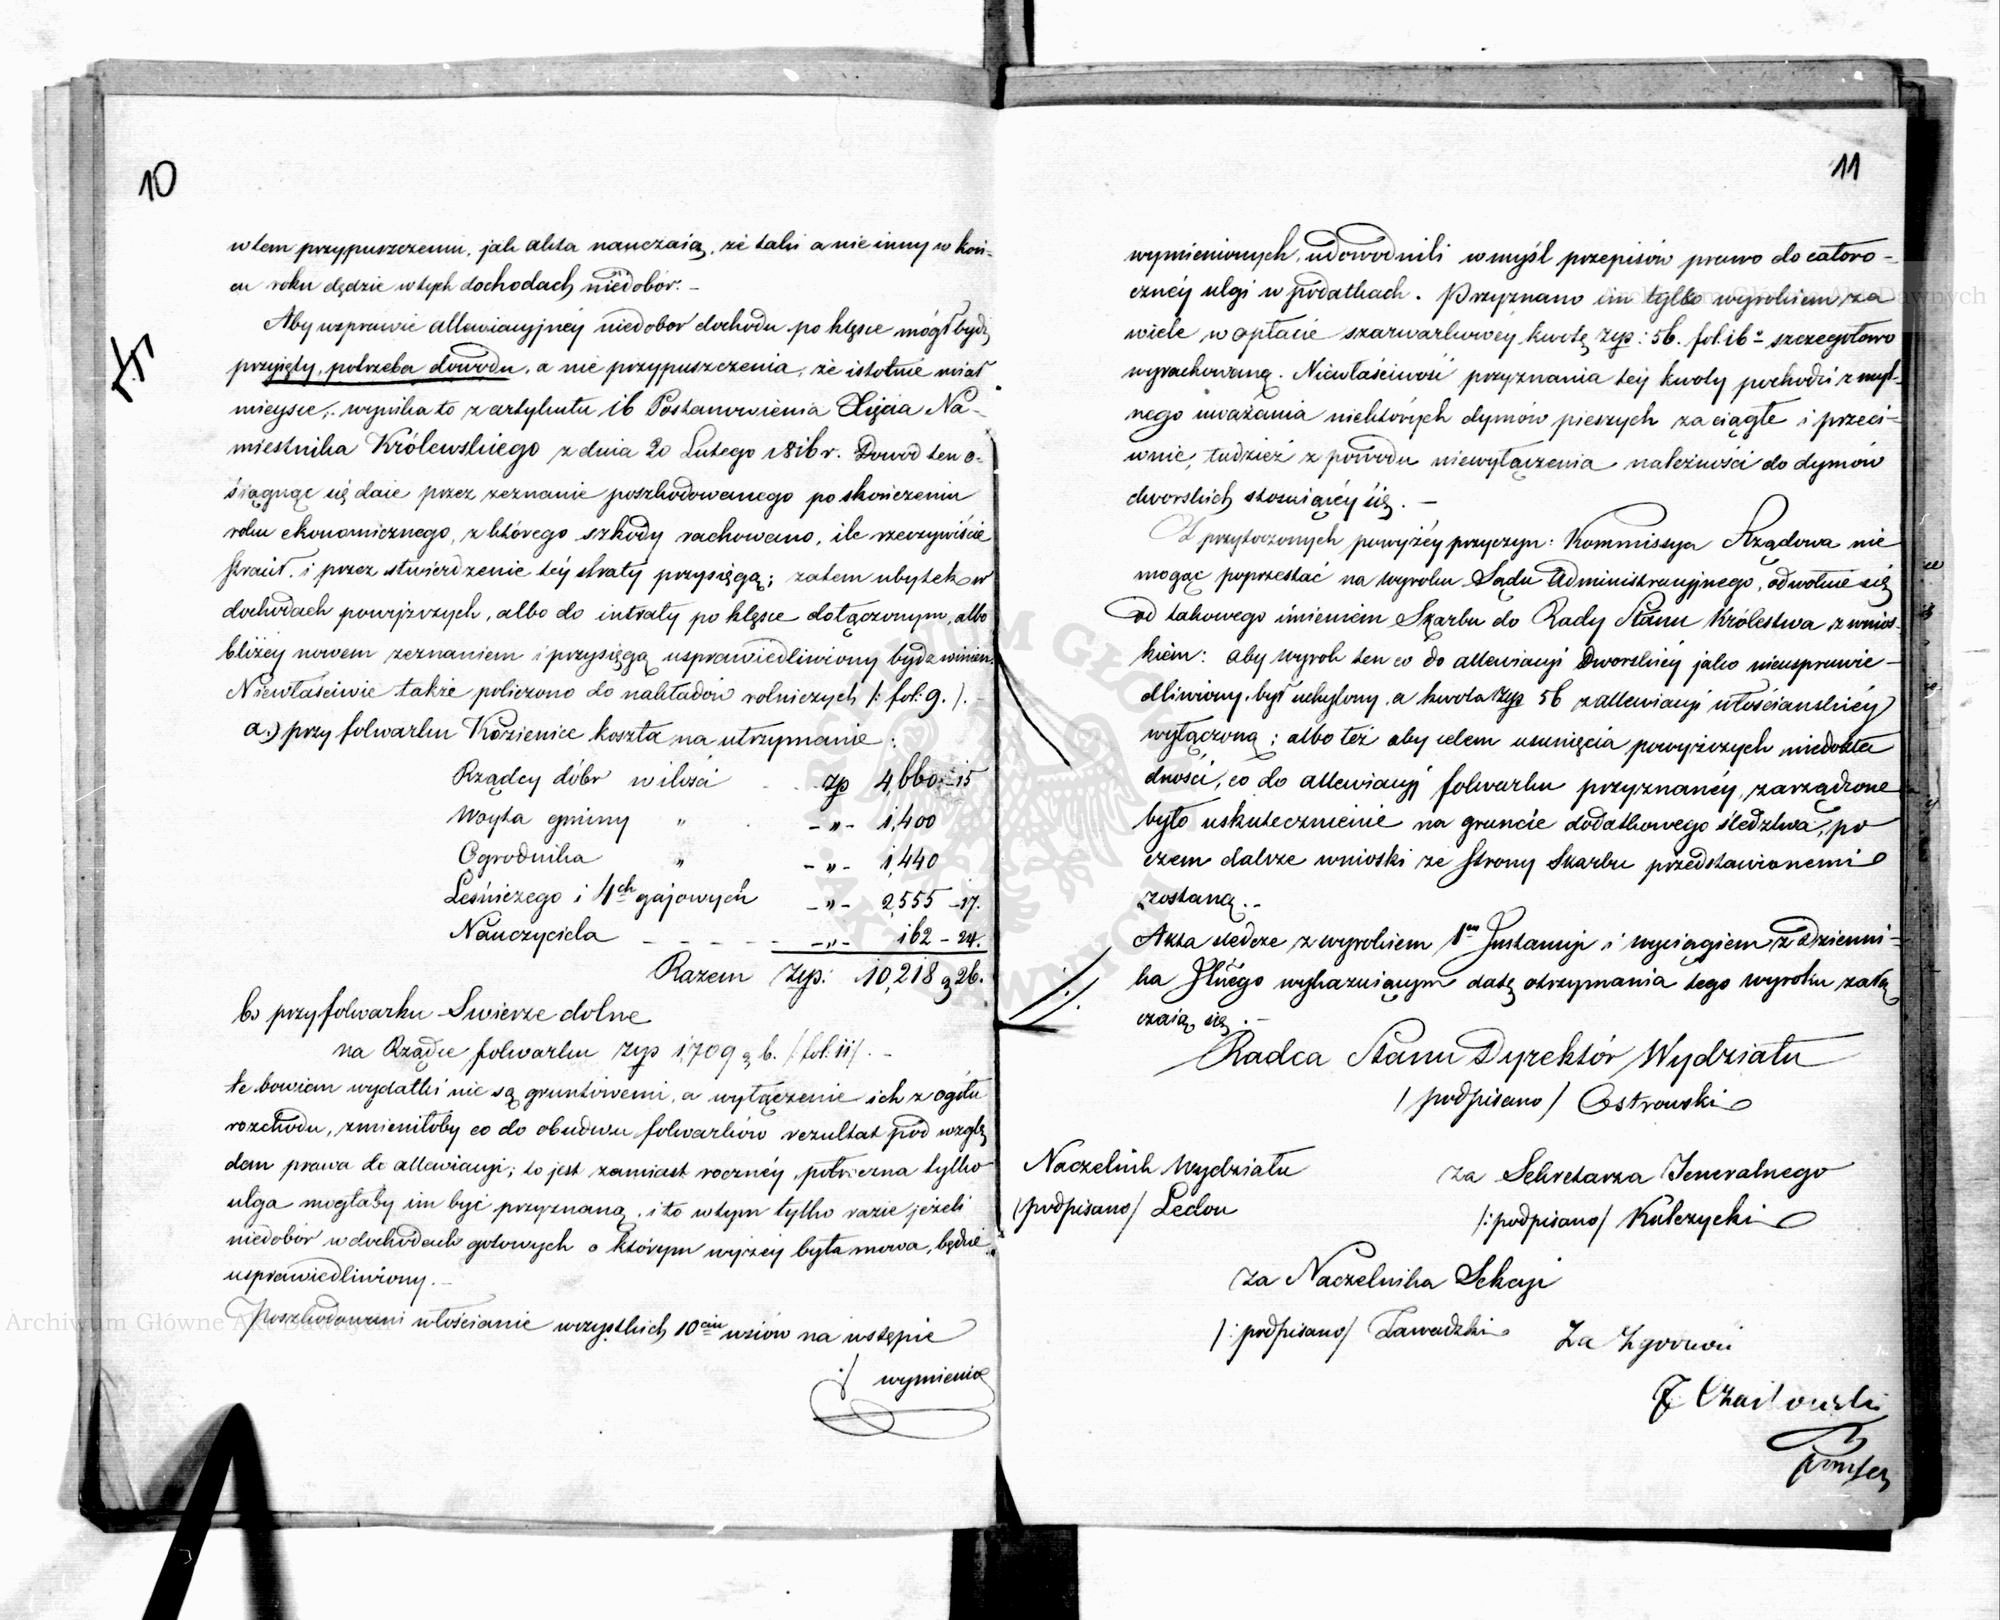 10
w tem przypuszczeniu, jak akta nauczaią, że taki a nie inny w koń-
cu roku będzie w tych dochodach niedobór. –
Aby w sprawie allewiacyjnéy niedobór dochodu po klęsce mógł bydź
przyięty, potrzeba dowodu, a nie przypuszczenia, że istotnie miał
mieysce; wynika to z artykułu 16 Postanowienia Xięcia Na-
miestnika Królewskiego z dnia 20 Lutego 1816 r. Dowód ten o-
siągnąć się daie przez zeznanie poszkodowanego po skończeniu
roku ekonomicznego, z którego szkody rachowano, ile rzeczywiście
stracił, i przez stwierdzenie téy straty przysięgą; zatem ubytek w
dochodach powyższych, albo do intraty po klęsce dołączonym, albo
bliżey nowem zeznaniem i przysięgą usprawiedliwiony bydź winien.
Niewłaściwie także policzono do nakładów rolniczych /: fol: 9. /. –
a.) przy folwarku Kozienice koszta na utrzymanie:
Rządcy dóbr w ilości zp 4,660 – 15
Woyta gminy " – " – 1,400
Ogrodnika " – " – 1,440
Leśniczego i 4ch gajowych – " – 2,555 – 17.
Nauczyciela – – – – – – " – 162 – 24.
Razem Złp: 10,218 g 26.
b) przy folwarku Swierze dolne
na Rządcę folwarku złp 1,709 g 6. /: fol: 11 /. –
te bowiem wydatki nie są gruntowemi, a wyłączenie ich z ogółu
rozchodu, zmieniłoby co do obudwu folwarków rezultat pod wzglę
dem prawa do allewiacyi; to jest zamiast rocznéy, półroczna tylko
ulga mogłaby im być przyznaną, i to w tym tylko razie jeżeli
niedobór w dochodach gotowych o którym wyżéy była mowa, będzie
usprawiedliwiony. –
Poszkodowani włościanie wszystkich 10ciu wsiów na wstępie
./ wymienio
11
wymienionych, udowodnili w myśl przepisów prawo do całoro-
cznéy ulgi w podatkach. Przyznano im tylko wyrokiem za
wiele w opłacie szarwarkowey kwotę złp: 56. fol. 16 szczegółowo
wyrachowaną. Niewłaściwość przyznania téy kwoty pochodzi z myl-
nego uważania niektórych dymów pieszych za ciągłe i przeci-
wnie, tudzież z powodu niewyłączenia należności do dymów
dworskich stosuiącéy się. –
Z przytoczonych powyżéy przyczyn: Kommissya Rządowa nie
mogąc poprzestać na wyroku Sądu Administracyjnego, odwołuie się
od takowego imieniem Skarbu do Rady Stanu Królestwa z wnios-
kiem: aby wyrok ten co do allewiacyi Dworskiéy jako nieusprawie-
dliwiony, był uchylony, a kwota złp 56 z allewiacyi włościańskiéy
wyłączoną; albo też aby celem usunięcia powyższych niedokła
dności, co do allewiacyi folwarku przyznanéy, zarządzone
było uskutecznienie na gruncie dodatkowego śledztwa, po
czem dalsze wnioski ze strony Skarbu przedstawionemi
zostaną. –
Akta śledcze z wyrokiem 1ey Instancyi i wyciągiem z dzienni-
ka Jłnego wykazuiącym datę otrzymania tego wyroku załą
czaią się. –
Radca Stanu Dyrektór Wydziału
/ podpisano / Ostrowski
Naczelnik Wydziału
/ podpisano / Ledou
za Sekretarza Jeneralnego
/: podpisano / Kulczycki
za Naczelnika Sekcyi
/: podpisano / Zawadzki
Za Zgodność
Archiwum Główne Akt Dawnych